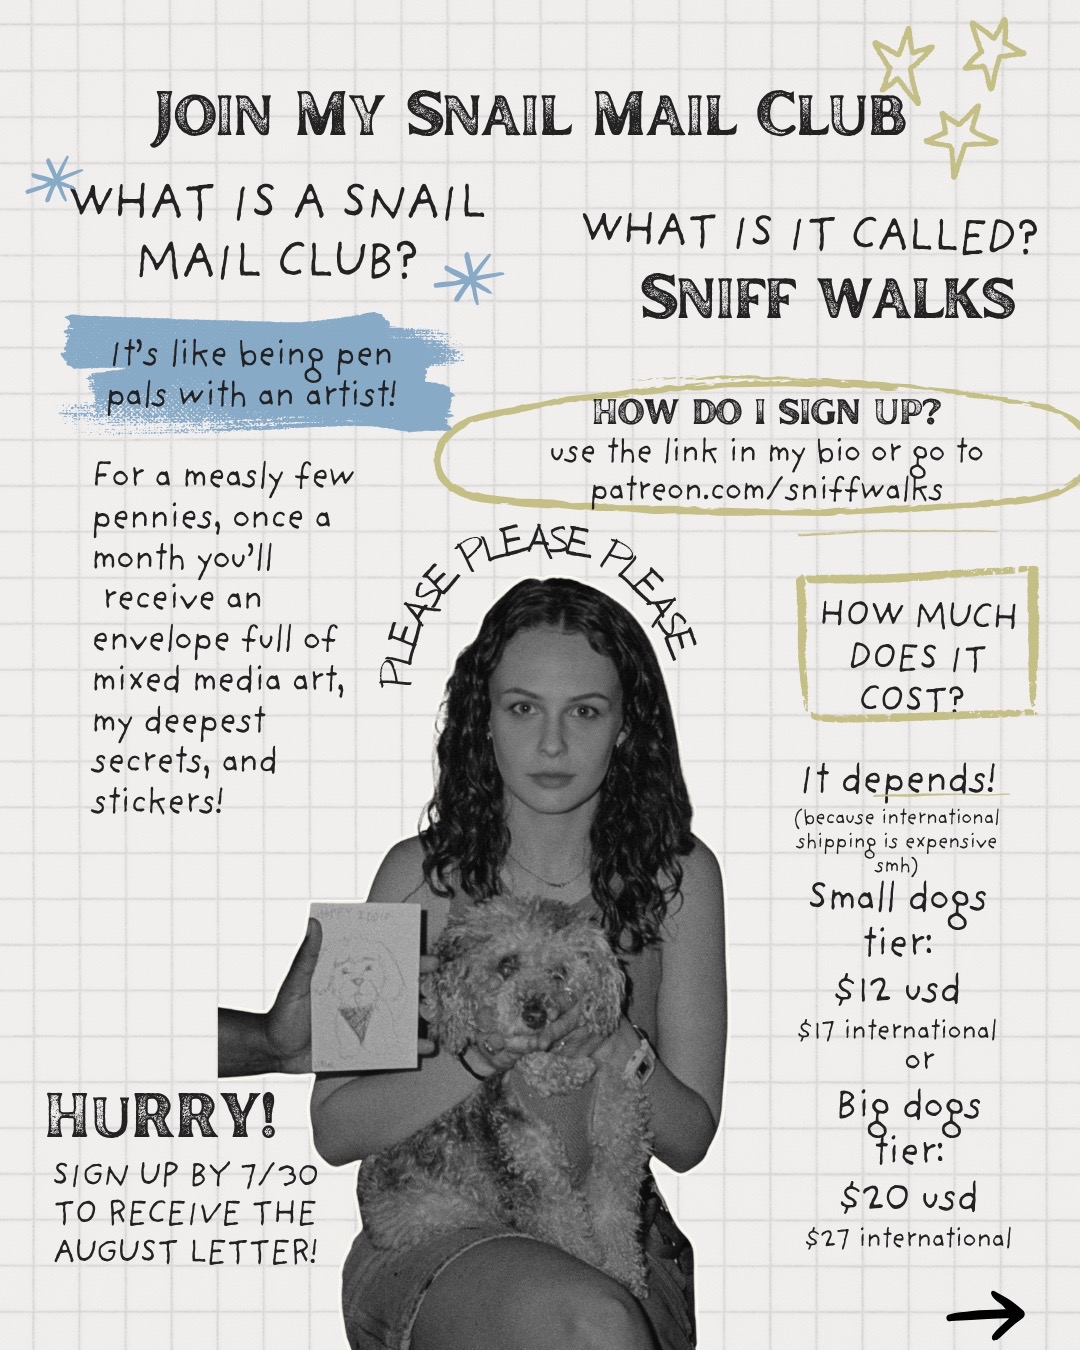 JOIN MY SNAIL MAIL CLUB
WHAT IS A SNAIL
MAIL CLUB?
It's like being pen
pals with an artist!
For a measly few
pennies, once a
month you'll
receive an
envelope full of
mixed media art,
my deepest
secrets, and
stickers!
WHAT IS IT CALLED?
SNIFF WALKS
HOW DO I SIGN UP?
use the link in my bio or go to
patreon.com/sniffwalks
PLEASE PLEASE PLEASE
HOW MUCH
DOES IT
COST?
It depends!
(because international
shipping is expensive
smh)
Small dogs
tier:
$12 usd
$17 international
or
Big dogs
tier:
$20 usd
$27 international
HURRY!
SIGN UP BY 7/30
TO RECEIVE THE
AUGUST LETTER!